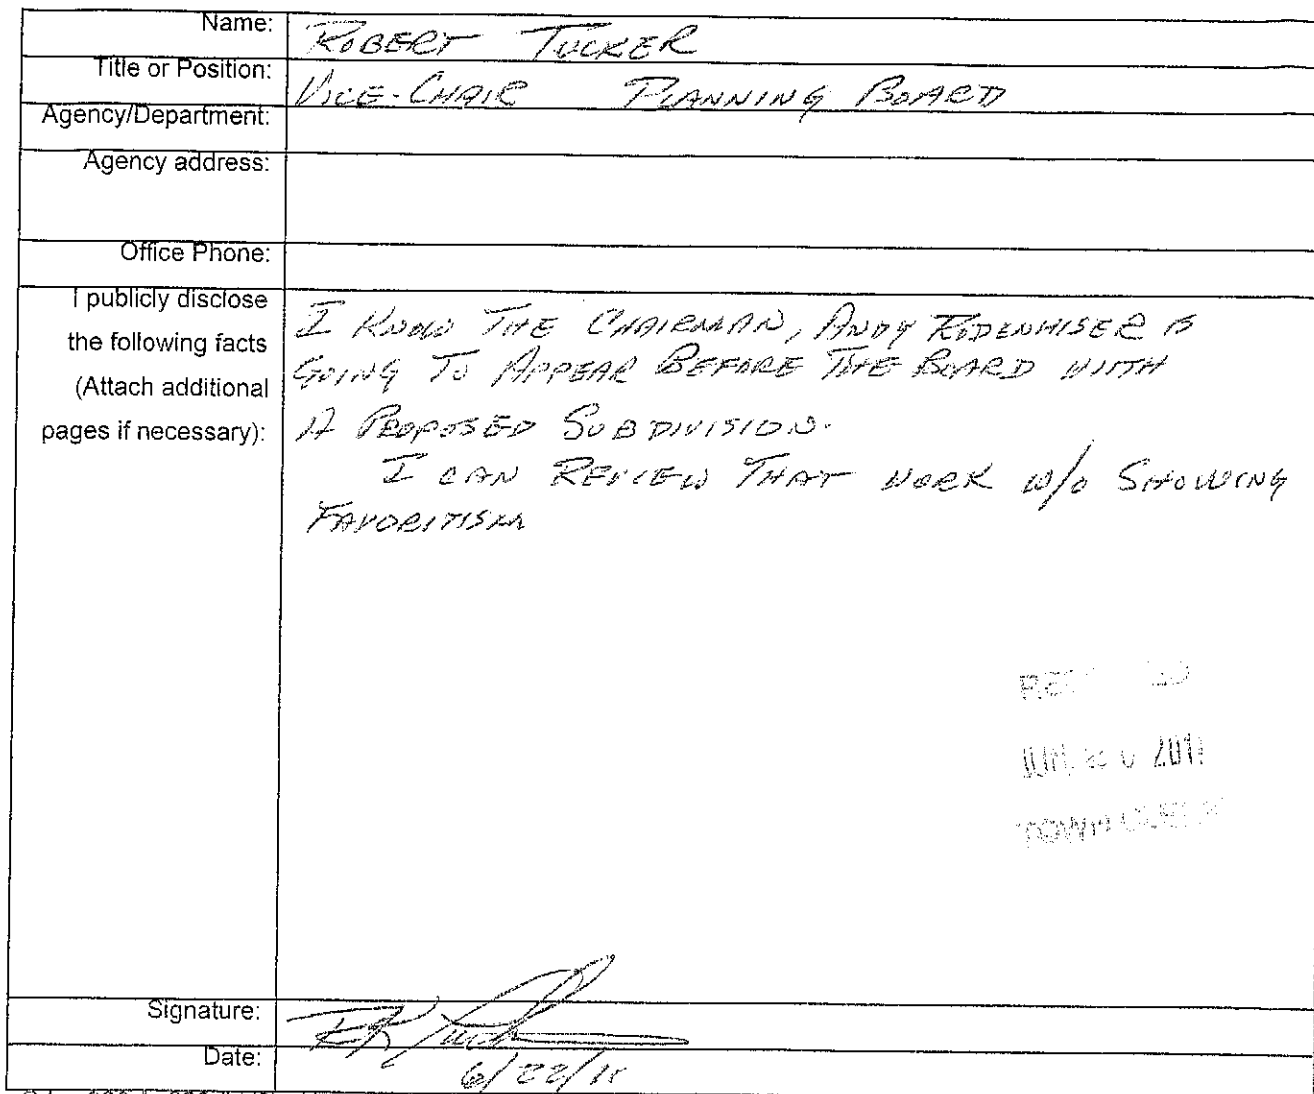 Name: ROBERT TUCKER
Title or Position: VICE-CHAIR PLANNING BOARD
Agency/Department:
Agency address:
Office Phone:
I publicly disclose
the following facts
(Attach additional
pages if necessary):
I KNOW THE CHAIRMAN, ANDY RODENHISER IS
GOING TO APPEAR BEFORE THE BOARD WITH
A PROPOSED SUBDIVISION.
I CAN REVIEW THAT WORK W/O SHOWING
FAVORITISM
JUN 2011
TOWN CLERK
Signature:
Date: 6/22/11